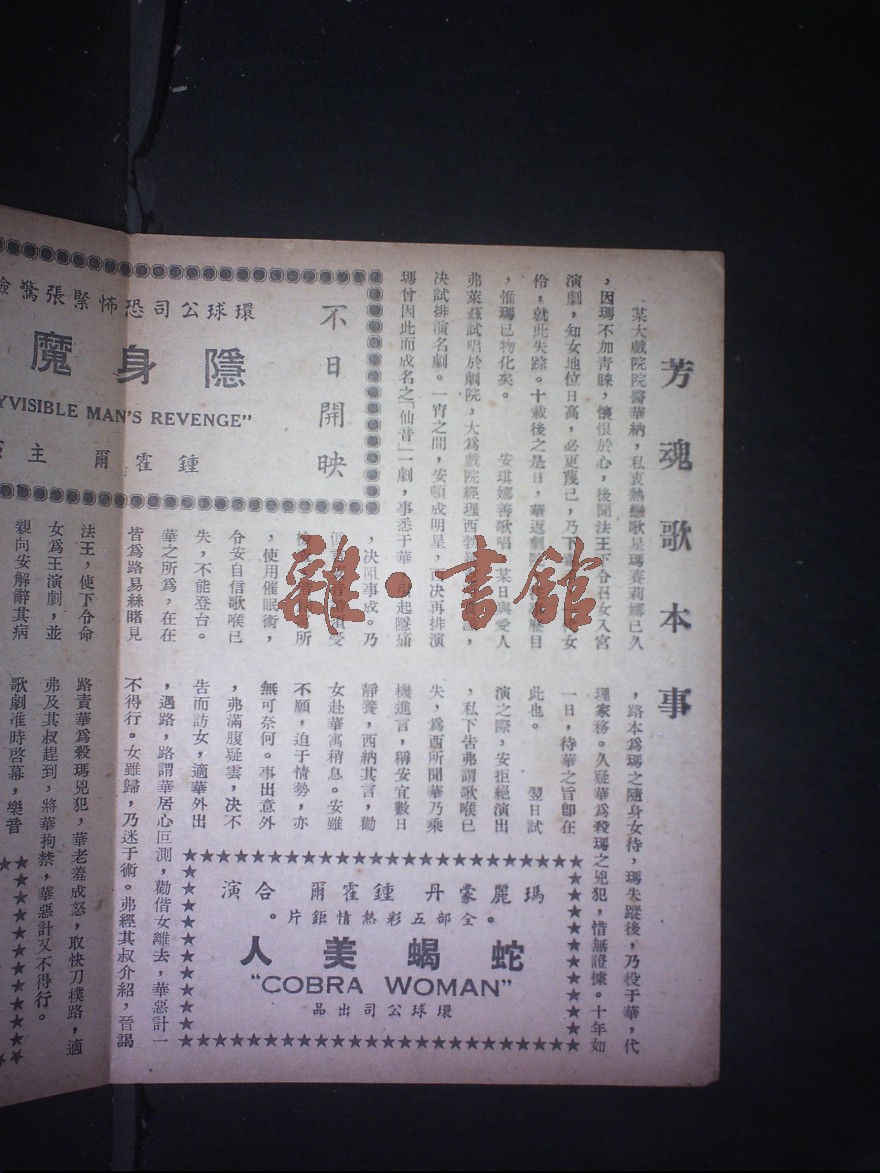 芳魂歌本事
某大戲院院醫華納，私衷熱戀歌星瑪賽莉娜已久
，因瑪不加青睞，懷恨於心，後聞法王下令召女入宮
演劇，知女地位日高，必更蔑己，乃下
女
伶，就此失踪。十載後之是日，華返劇院
歷目
，惟瑪已物化矣。　安琪娜善歌唱，某日與愛人
弗萊茲試唱於劇院，大爲戲院經理西勃
，
决試排演名劇。一宵之間，安頓成明星，西决再排演
瑪曾因此而成名之「仙音」一劇，事悉于華，引起隧痛
，决阻事成。乃
受
所
，使用催眠術，
令安自信歌喉已
失，不能登台。
華之所爲，在在
皆爲路易絲睹見
，路本爲瑪之隨身女侍，瑪失蹤後，乃投于華，代
理家務。久疑華爲殺瑪之兇犯，惜無證據。十年如
一日，待華之旨即在
此也。　翌日試
演之際，安拒絕演出
，私下告弗謂歌喉已
失，爲西所聞華乃乘
機進言，稱安宜數日
靜養，西納其言，勸
女赴華寓稍息。安雖
不願，迫于情勢，亦
無可奈何。事出意外
，弗滿腹疑雲，决不
告而訪女，適華外出
，遇路，路謂華居心叵測，勸偕女離去，華惡計一
不得行。女雖歸，乃迷于術。弗經其叔介紹，晉謁
法王，使下令命
女爲王演劇，並
親向安解辭其病
路責華爲殺瑪兇犯，華老羞成怒，取快刀撲路，適
弗及其叔趕到，將華拘禁，華惡計又不得行。
歌劇准時啓幕，樂音
不日開映
環球公司恐怖緊張驚險
隱身魔
VISIBLE MAN'S REVENGE"
鍾霍爾 主
瑪麗蒙丹 鍾霍爾 合演
。全部五彩熱情鉅片。
蛇蝎美人
"COBRA WOMAN"
環球公司出品
雜·書館